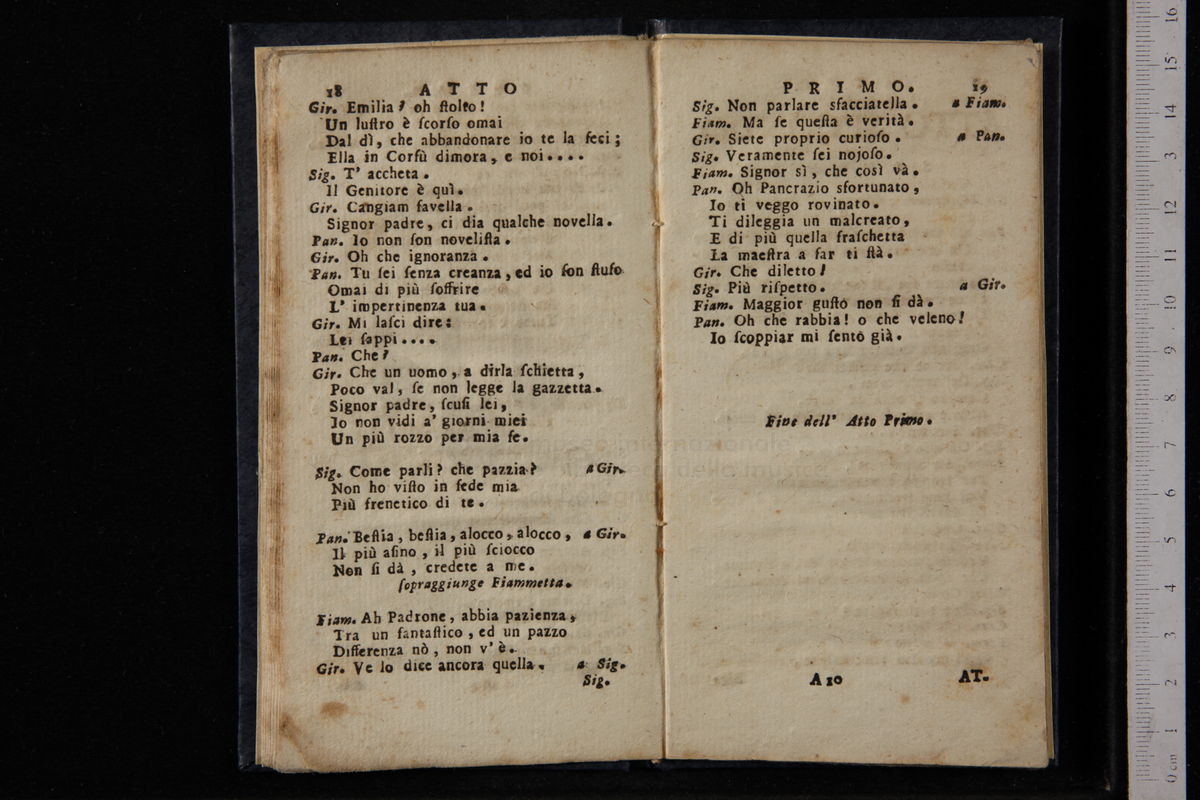 18 ATTO
Gir. Emilia? oh ſtolto!
Un luſtro è ſcorſo omai
Dal dì, che abbandonare io te la feci;
Ella in Corfù dimora, e noi....
Sig. T' accheta.
Il Genitore è quì.
Gir. Cangiam favella.
Signor padre, ci dia qualche novella.
Pan. Io non ſon noveliſta.
Gir. Oh che ignoranza.
Pan. Tu ſei ſenza creanza, ed io ſon ſtufo
Omai di più ſoffrire
L' impertinenza tua.
Gir. Mi laſci dire:
Lei ſappi....
Pan. Che?
Gir. Che un uomo, a dirla ſchietta,
Poco val, ſe non legge la gazzetta.
Signor padre, ſcuſi lei,
Io non vidi a' giorni miei
Un più rozzo per mia fe.
Sig. Come parli? che pazzia? a Gir.
Non ho viſto in fede mia
Più frenetico di te.
Pan. Beſtia, beſtia, alocco, alocco, a Gir.
Il più aſino, il più ſciocco
Non ſi dà, credete a me.
ſopraggiunge Fiammetta.
Fiam. Ah Padrone, abbia pazienza,
Tra un fantaſtico, ed un pazzo
Differenza nò, non v' è.
Gir. Ve lo dice ancora quella. a Sig.
Sig.
PRIMO. 19
Sig. Non parlare sfacciatella. a Fiam.
Fiam. Ma ſe queſta è verità.
Gir. Siete proprio curioſo. a Pan.
Sig. Veramente ſei nojoſo.
Fiam. Signor sì, che così và.
Pan. Oh Pancrazio sfortunato,
Io ti veggo rovinato.
Ti dileggia un malcreato,
E di più quella fraſchetta
La maeſtra a far ti ſtà.
Gir. Che diletto!
Sig. Più riſpetto. a Gir.
Fiam. Maggior guſto non ſi dà.
Pan. Oh che rabbia! o che veleno!
Io ſcoppiar mi ſento già.
Fine dell' Atto Primo.
A 10 AT.
0 cm 1 2 3 4 5 6 7 8 9 10 11 12 13 14 15 16